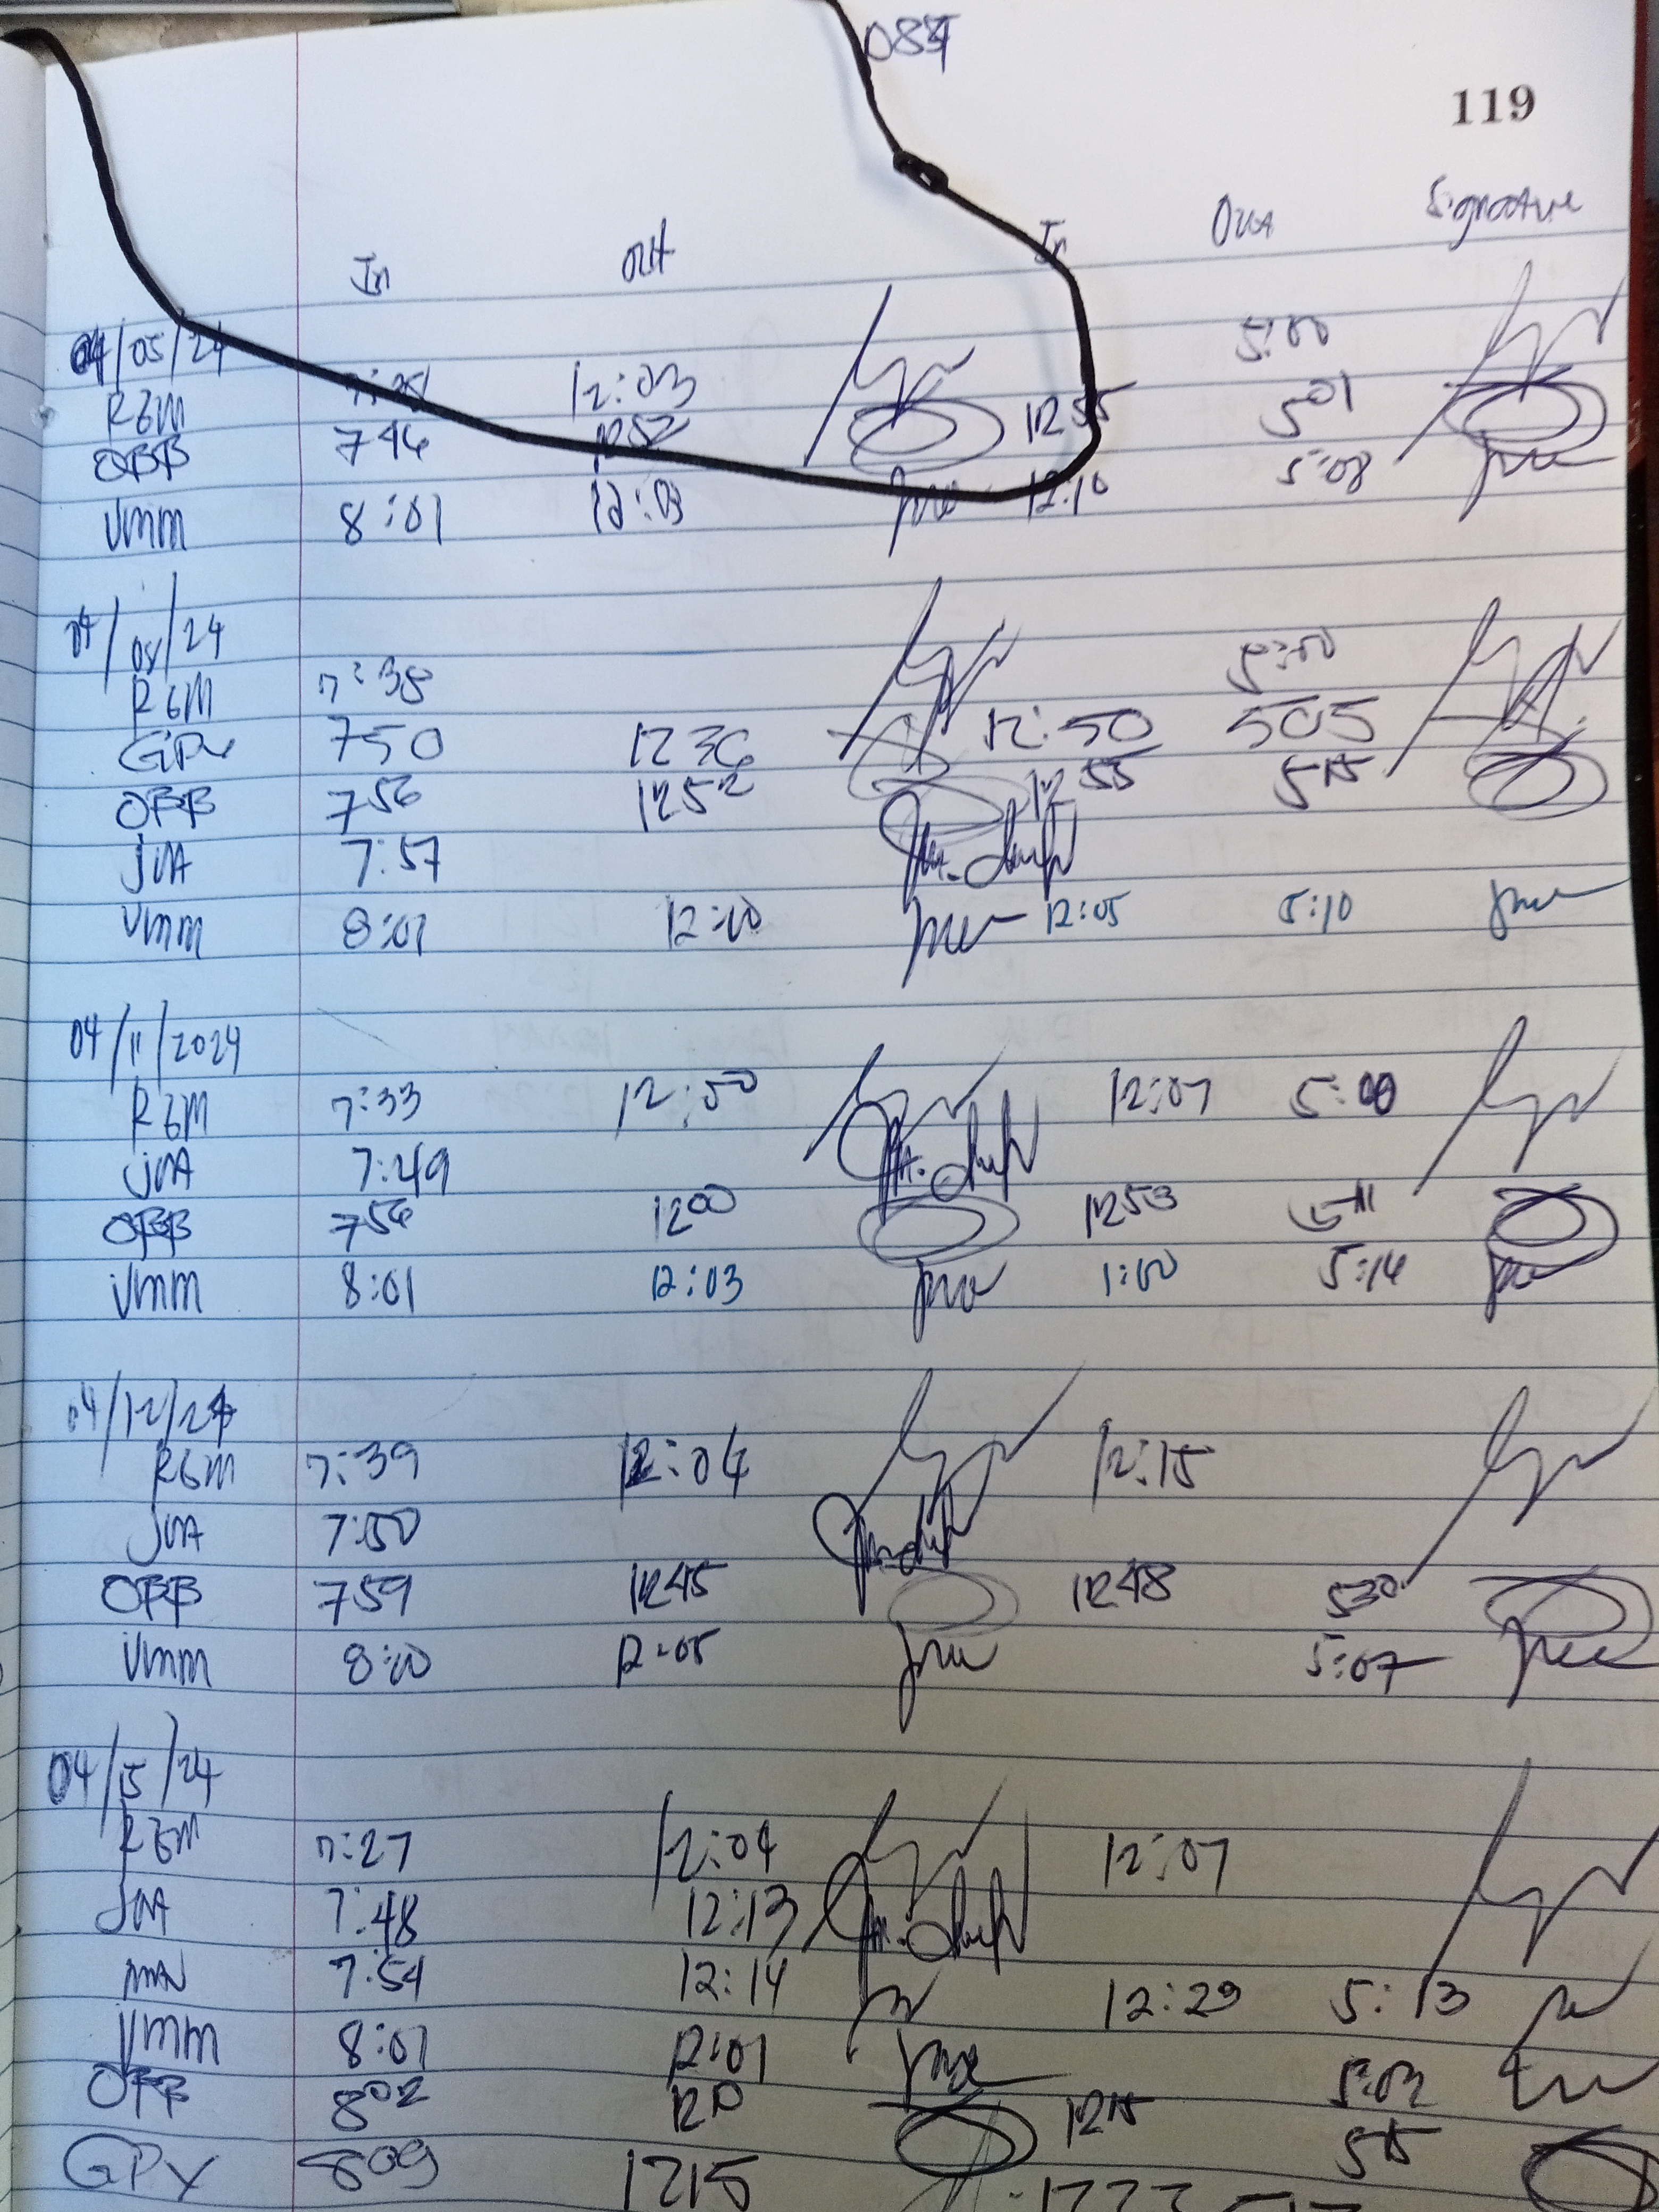 119
In Out In Out Signature
04/05/24 5:00
RGM 12:03
OBB 746 1252 1255 501
VMM 8:01 12:03 12:10 5:08
04/08/24
RGM 7:38 5:00
GPY 750 1236 12:50 505
OBB 756 1252 1255 515
JUA 7:57
VMM 8:01 12:00 12:05 5:10
04/11/2024
RGM 7:33 12:00 12:07 5:00
JUA 7:49
OBB 756 1200 1253 511
VMM 8:01 12:03 1:00 5:14
04/12/24
RGM 7:39 12:04 12:15
JUA 7:50
OBB 759 1245 1248 530
VMM 8:00 12:05 5:07
04/15/24
RGM 7:27 12:04 12:07
JUA 7:48 12:13
7:54 12:14 12:29 5:13
VMM 8:01 12:01 5:03
OBB 802 1210 1215 515
GPY 809 1215